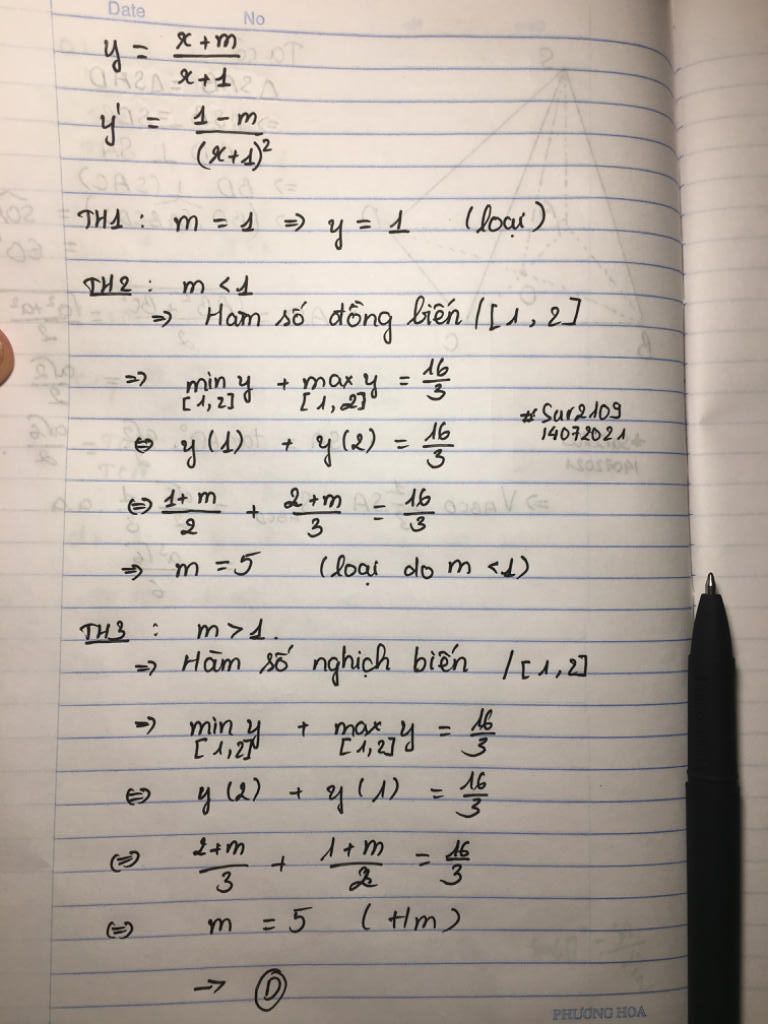 Date No
y = \frac{x+m}{x+1}
y' = \frac{1-m}{(x+1)^2}
TH1 : m = 1 => y = 1 (loại)
TH2 : m < 1
=> Ham số đồng biến / [1, 2]
=> min y + max y = \frac{16}{3}
[1,2] [1,2]
#Sur2109
14072021
<=> y(1) + y(2) = \frac{16}{3}
<=> \frac{1+m}{2} + \frac{2+m}{3} = \frac{16}{3}
=> m = 5 (loại do m < 1)
TH3 : m > 1.
=> Hàm số nghịch biến / [1,2]
=> min y + max y = \frac{16}{3}
[1,2] [1,2]
<=> y(2) + y(1) = \frac{16}{3}
<=> \frac{2+m}{3} + \frac{1+m}{2} = \frac{16}{3}
<=> m = 5 (tm)
-> D
PHƯƠNG HOA